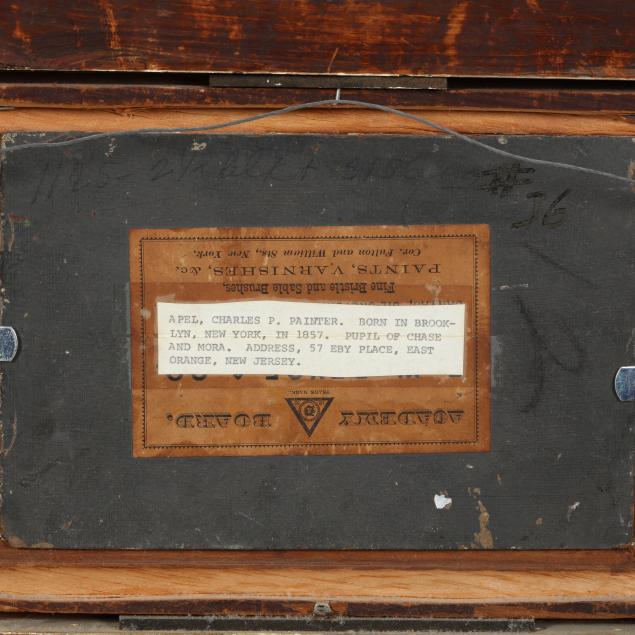 #
36
APEL, CHARLES P. PAINTER. BORN IN BROOK-
LYN, NEW YORK, IN 1857. PUPIL OF CHASE
AND MORA. ADDRESS, 57 EBY PLACE, EAST
ORANGE, NEW JERSEY.
ACADEMY BOARD.
TRADE MARK.
Fine Bristle and Sable Brushes,
PAINTS, VARNISHES, &c.
Cor. Fulton and William Sts., New York.